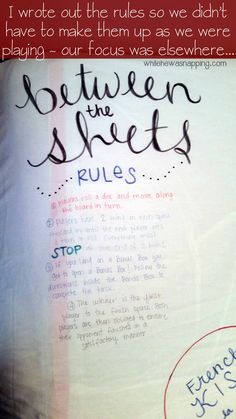 I wrote out the rules so we didn't
have to make them up as we were
playing ~ our focus was elsewhere...
whilehewasnapping.com
between
the
sheets
RULES
① players roll a die and move along
the board in turn.
② players have 2 mins in each space
STOP at the end of 2 mins.
③ If you land on a Bonus Box you
get to open a Bonus Box! Follow the
directions inside the Bonus Box to
complete the task.
④ The winner is the first
player to the finish space. Both
players are then obliged to ensure
their opponent finishes in a
satisfactory manner
French
KIS